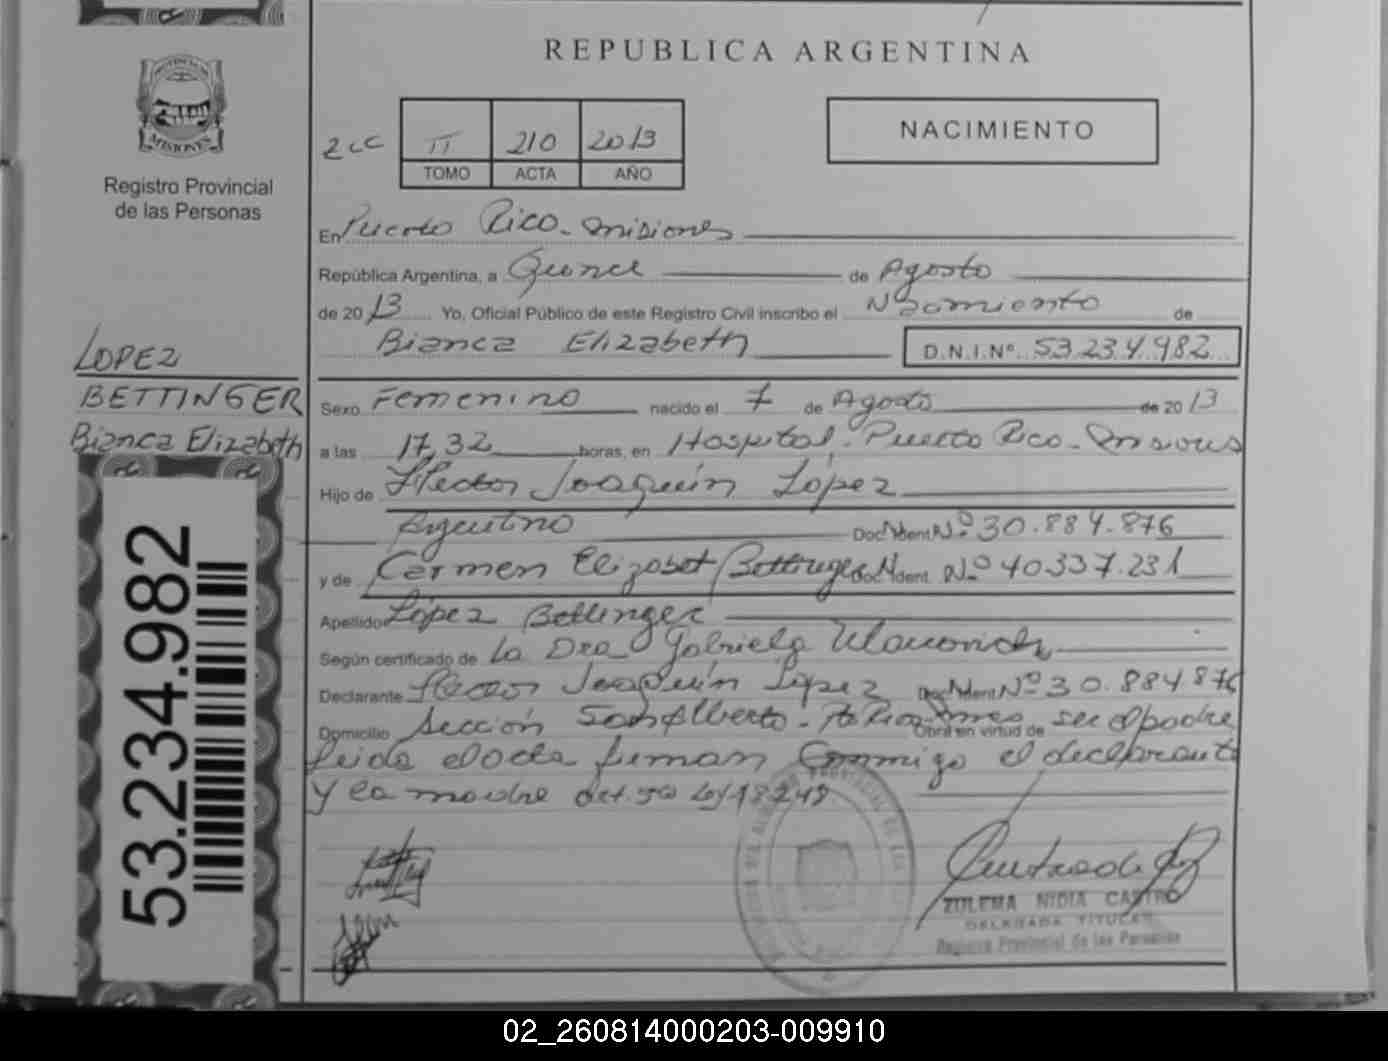 REPUBLICA ARGENTINA
PROVINCIA
MISIONES
Registro Provincial
de las Personas
2cc II 210 2013
TOMO ACTA AÑO
NACIMIENTO
En Puerto Rico - Misiones
República Argentina, a Quince de Agosto
de 2013 Yo, Oficial Público de este Registro Civil inscribo el Nacimiento de
Bianca Elizabeth D.N.I.Nº 53.234.982
LOPEZ
BETTINGER
Bianca Elizabeth
Sexo Femenino nacido el 7 de Agosto de 2013
a las 17,32 horas, en Hospital - Puerto Rico - Misiones
Hijo de Hector Joaquín López
Argentino Doc. Ident. Nº 30.884.876
y de Carmen Elizabet Bettinger Doc. Ident. Nº 40337.231
Apellido López Bettinger
Según certificado de La Dra Gabriela
Declarante Hector Joaquín López Doc. Ident. Nº 30.884.876
Domicilio Sección San Alberto - Pto Rico Mnes Obra en virtud de ser el padre
leida el acta firman Conmigo el declarante
y la madre Art. 5º Ley 18248
53.234.982
ZULEMA NIDIA CASTRO
DELEGADA TITULAR
Registro Provincial de las Personas
02_260814000203-009910